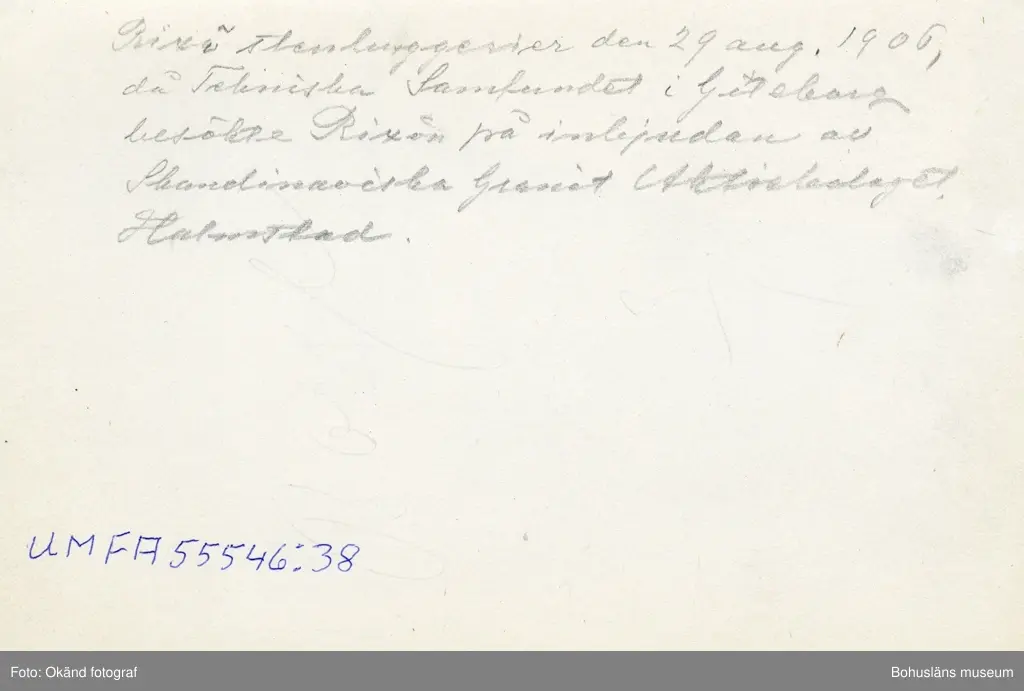 Rixö stenhuggerier den 29 aug. 1906,
då Tekniska Samfundet i Göteborg
besökte Rixön på inbjudan av
Skandinaviska Granit Aktiebolaget,
Halmstad.
UMFA55546:38
Foto: Okänd fotograf
Bohusläns museum